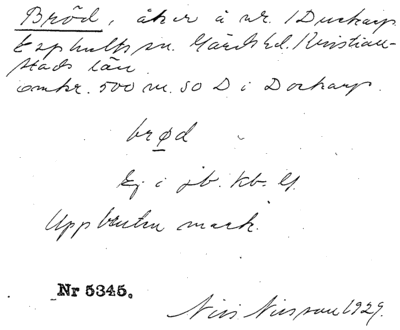 Bröd, åker å nr. 1 Duckarp
Esphults sn. Gärds hd. Kristian-
stads län
omkr. 500 m. SO D i Dockarp.
brød
Ej i jb. Kb. 
Uppbruten mark.
Nr 5345.
Nils Nilsson 1929.